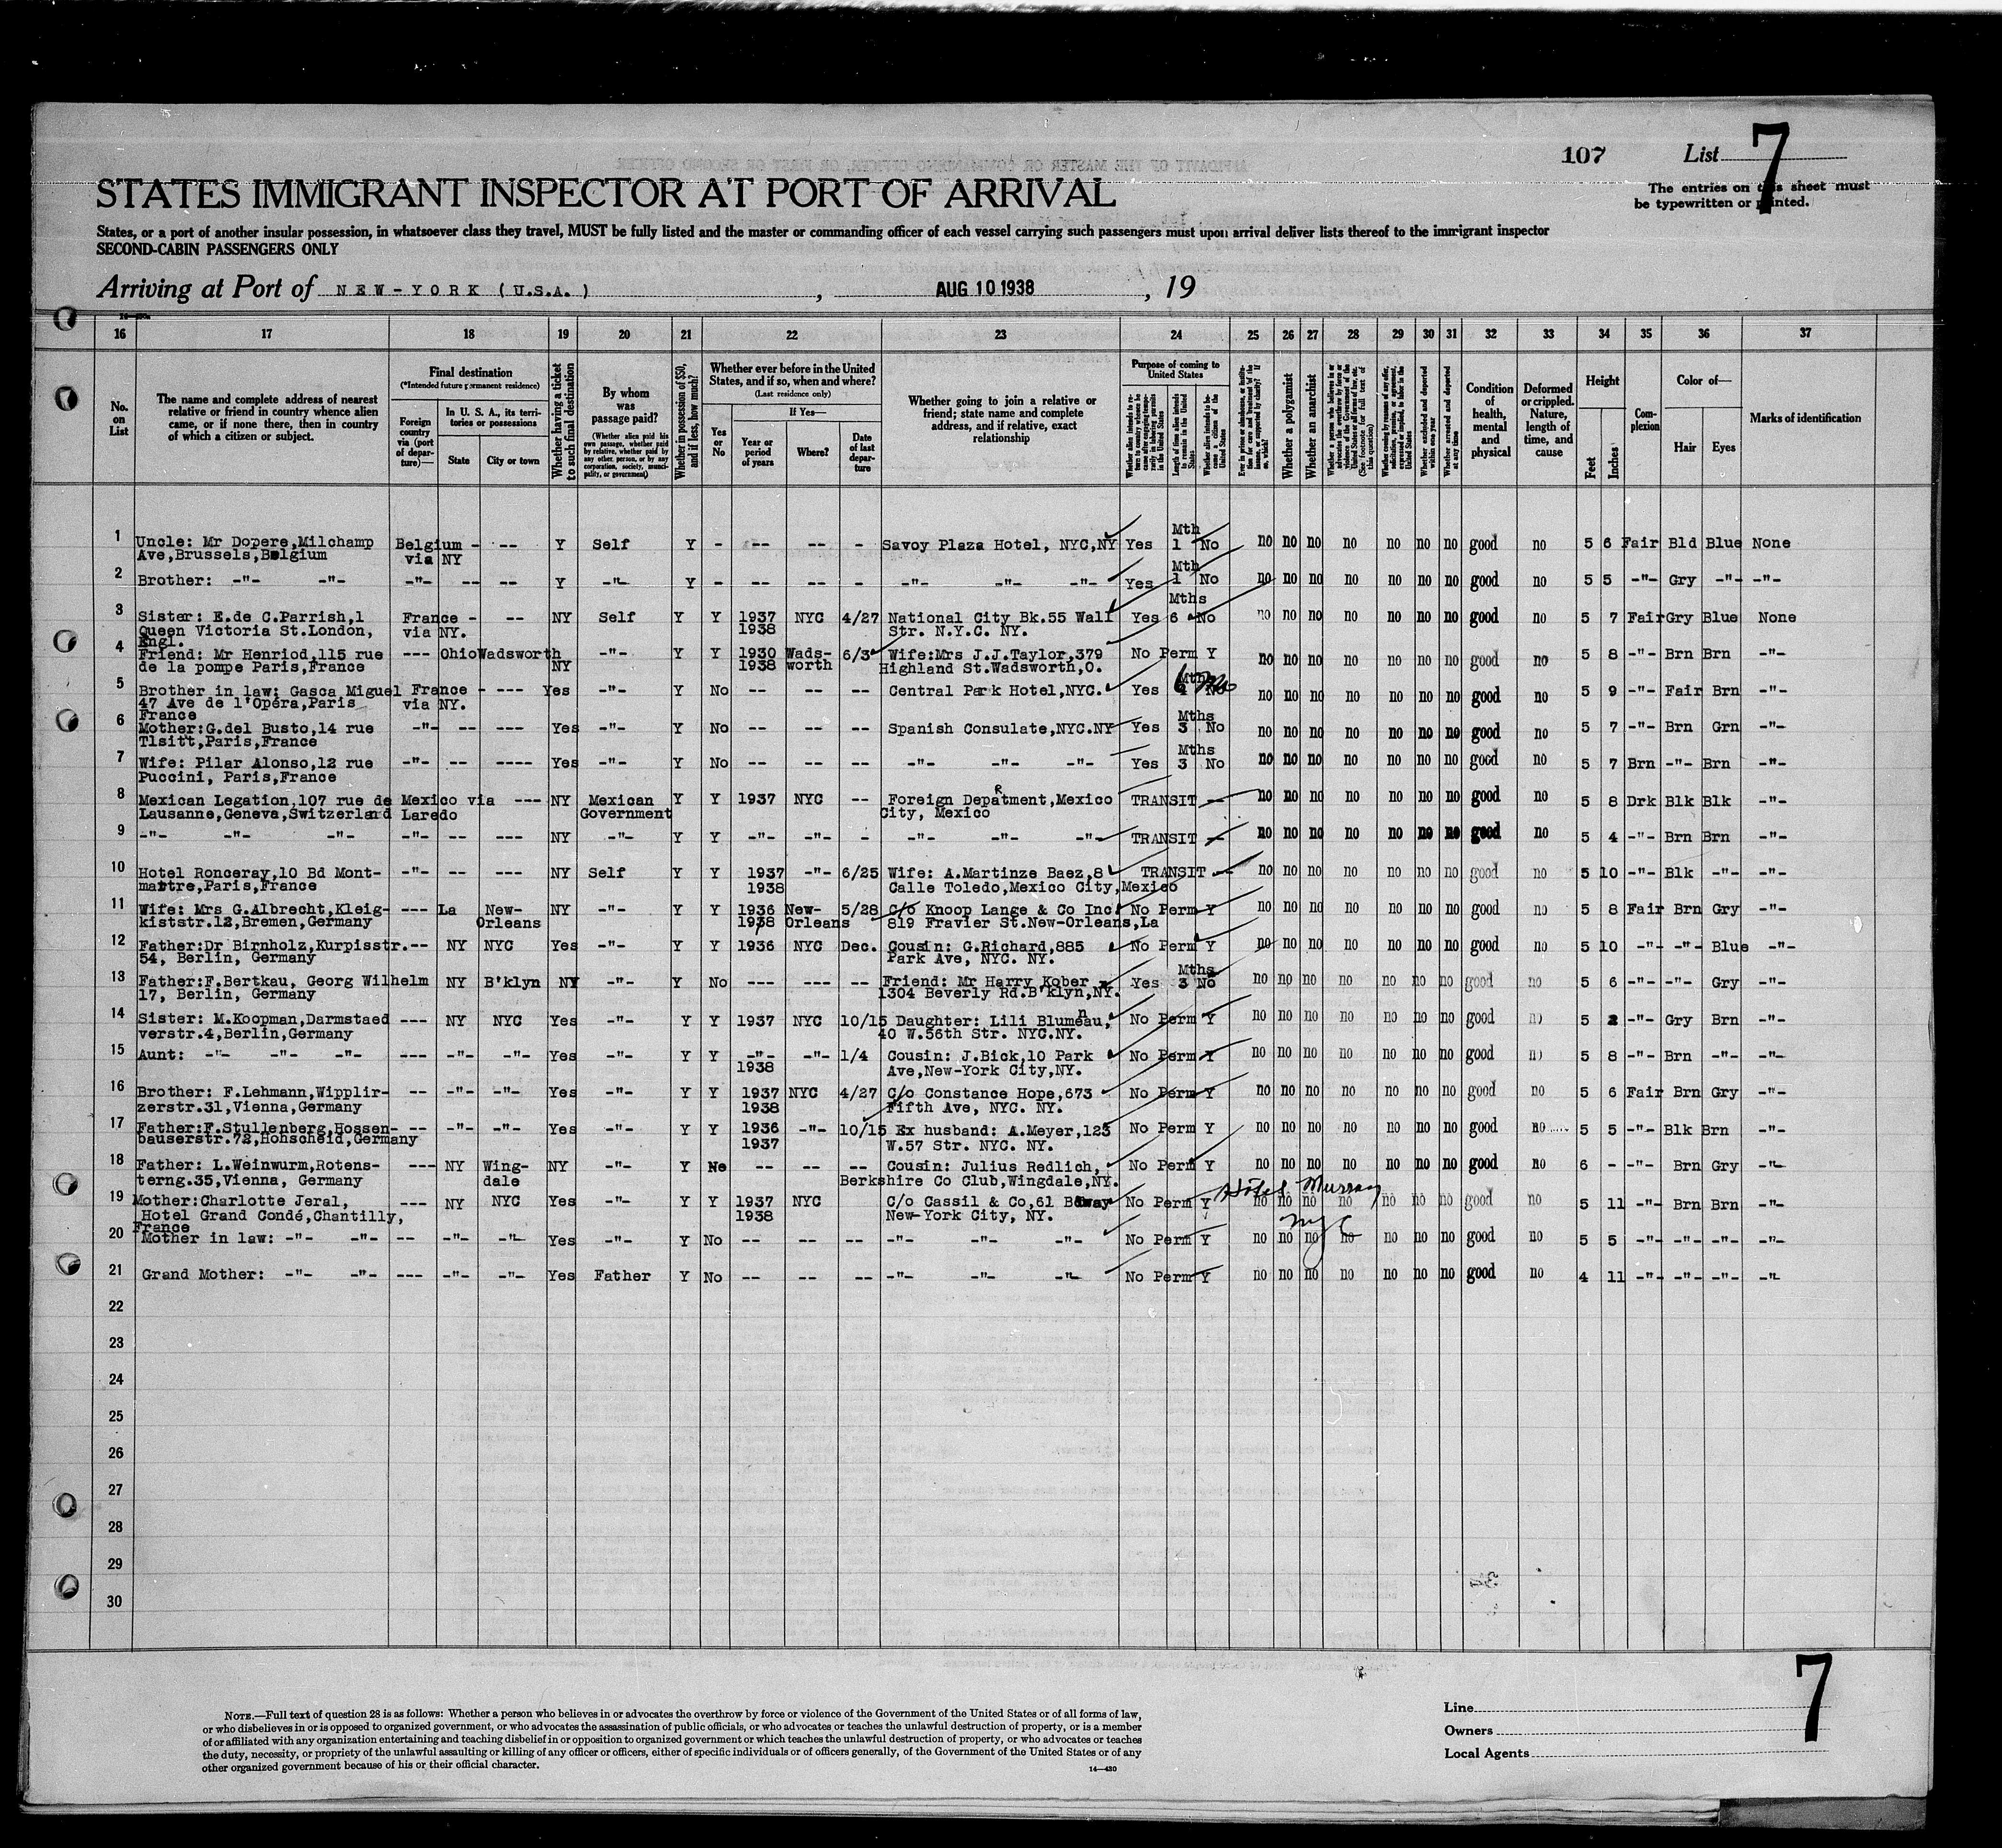 107 List 7
The entries on this sheet must
be typewritten or printed.
STATES IMMIGRANT INSPECTOR AT PORT OF ARRIVAL
States, or a port of another insular possession, in whatsoever class they travel, MUST be fully listed and the master or commanding officer of each vessel carrying such passengers must upon arrival deliver lists thereof to the immigrant inspector
SECOND-CABIN PASSENGERS ONLY
Arriving at Port of NEW-YORK (U.S.A.) , AUG 10 1938 , 19
16 17 18 19 20 21 22 23 24 25 26 27 28 29 30 31 32 33 34 35 36 37
No. on List
The name and complete address of nearest relative or friend in country whence alien came, or if none there, then in country of which a citizen or subject.
Final destination
(*Intended future permanent residence)
Foreign country via (port of departure)—
In U. S. A., its territories or possessions
State City or town
Whether having a ticket to such final destination
By whom was passage paid?
(Whether alien paid his own passage, whether paid by relative, whether paid by any other person, or by any corporation, society, municipality, or government)
Whether in possession of $50, and if less, how much?
Whether ever before in the United States, and if so, when and where?
(Last residence only)
Yes or No
If Yes—
Year or period of years Where? Date of last departure
Whether going to join a relative or friend; state name and complete address, and if relative, exact relationship
Purpose of coming to United States
Length of time alien intends to remain in the United States
Whether alien intends to become a citizen of the United States
Whether a polygamist
Whether an anarchist
Whether excluded and deported within one year
Whether arrested and deported at any time
Condition of health, mental and physical
Deformed or crippled. Nature, length of time, and cause
Height
Feet Inches
Complexion
Color of—
Hair Eyes
Marks of identification
1 Uncle: Mr Dopere,Milchamp Belgium - -- Y Self Y - -- -- - Savoy Plaza Hotel, NYC,NY Yes Mth 1 No no no no no no no no good no 5 6 Fair Bld Blue None
Ave,Brussels,Belgium via NY
2 Brother: -"- -"- -"- -- -- Y -"- Y - -- -- - -"- -"- -"- Yes Mth 1 No no no no no no no no good no 5 5 -"- Gry -"- -"-
3 Sister: E.de C.Parrish,1 France - -- NY Self Y Y 1937 NYC 4/27 National City Bk.55 Wall Yes Mths 6 No no no no no no no no good no 5 7 Fair Gry Blue None
Queen Victoria St.London, via NY. 1938 Str. N.Y.C. NY.
Engl.
4 Friend: Mr Henriod,115 rue --- Ohio Wadsworth -"- Y Y 1930 Wads- 6/3 Wife:Mrs J.J.Taylor,379 No Perm Y no no no no no no no good no 5 8 -"- Brn Brn -"-
de la pompe Paris,France NY 1938 worth Highland St.Wadsworth,O.
5 Brother in law: Gasca Miguel France - --- Yes -"- Y No -- -- -- Central Park Hotel,NYC. Yes Mths 6 mo No no no no no no no no good no 5 9 -"- Fair Brn -"-
47 Ave de l'Opéra,Paris via NY.
France
6 Mother:G.del Busto,14 rue -"- -- --- Yes -"- Y No -- -- -- Spanish Consulate,NYC.NY Yes Mths 3 No no no no no no no no good no 5 7 -"- Brn Grn -"-
Tlsitt,Paris,France
7 Wife: Pilar Alonso,12 rue -"- -- ---- Yes -"- Y No -- -- -- -"- -"- -"- Yes Mths 3 No no no no no no no no good no 5 7 Brn -"- Brn -"-
Puccini, Paris,France
8 Mexican Legation,107 rue de Mexico via --- NY Mexican Y Y 1937 NYC -- Foreign DepaRtment,Mexico TRANSIT -- no no no no no no no good no 5 8 Drk Blk Blk -"-
Lausanne,Geneva,Switzerland Laredo Government City, Mexico
9 -"- -"- -"- -"- -- --- NY -"- Y Y -"- -"- - -"- -"- -"- TRANSIT - no no no no no no no good no 5 4 -"- Brn Brn -"-
10 Hotel Ronceray,10 Bd Mont- -"- -- --- NY Self Y Y 1937 -"- 6/25 Wife: A.Martinze Baez,8 TRANSIT -- no no no no no no no good no 5 10 -"- Blk -"- -"-
martre,Paris,France 1938 Calle Toledo,Mexico City,Mexico
11 Wife: Mrs G.Albrecht,Kleig- --- La New- NY -"- Y Y 1936 New- 5/28 C/o Knoop Lange & Co Inc. No Perm Y no no no no no no no good no 5 8 Fair Brn Gry -"-
kiststr.12,Bremen,Germany Orleans 1938 Orleans 819 Fravier St.New-Orleans,La
12 Father:Dr Birnholz,Kurpisstr.-- NY NYC Yes -"- Y Y 1936 NYC Dec. Cousin: G.Richard,885 No Perm Y no no no no no no no good no 5 10 -"- -"- Blue -"-
54, Berlin, Germany Park Ave, NYC. NY.
13 Father:F.Bertkau, Georg Wilhelm NY B'klyn NY -"- Y No --- --- -- Friend: Mr Harry Kober Yes Mths 3 No no no no no no no no good no 5 6 -"- -"- Gry -"-
17, Berlin, Germany 1304 Beverly Rd.B'klyn,NY.
14 Sister: M.Koopman,Darmstaed --- NY NYC Yes -"- Y Y 1937 NYC 10/15 Daughter: Lili Blumenau, No Perm Y no no no no no no no good no 5 2 -"- Gry Brn -"-
verstr.4,Berlin,Germany 40 W.56th Str. NYC.NY.
15 Aunt: -"- -"- -"- --- -"- -"- Yes -"- Y Y -"- -"- 1/4 Cousin: J.Bick,10 Park No Perm Y no no no no no no no good no 5 8 -"- Brn -"- -"-
1938 Ave,New-York City,NY.
16 Brother: F.Lehmann,Wipplir- -- -"- -"- Yes -"- Y Y 1937 NYC 4/27 C/o Constance Hope,673 No Perm Y no no no no no no no good no 5 6 Fair Brn Gry -"-
zerstr.31,Vienna,Germany 1938 Fifth Ave, NYC. NY.
17 Father:F.Stullenberg,Hossen- -- -"- -"- Yes -"- Y Y 1936 -"- 10/15 Ex husband: A.Meyer,123 No Perm Y no no no no no no no good no 5 5 -"- Blk Brn -"-
bauserstr.72,Hohscheid,Germany 1937 W.57 Str. NYC. NY.
18 Father: L.Weinwurm,Rotens- --- NY Wing- NY -"- Y No -- -- -- Cousin: Julius Redlich, No Perm Y no no no no no no no good no 6 - -"- Brn Gry -"-
terng.35,Vienna, Germany dale Berkshire Co Club,Wingdale,NY.
Hotel Murray
19 Mother:Charlotte Jeral, --- NY NYC Yes -"- Y Y 1937 NYC C/o Cassil & Co,61 Bdway No Perm Y no no no no no no no good no 5 11 -"- Brn Brn -"-
Hotel Grand Condé,Chantilly, 1938 New-York City, NY.
France NYC
20 Mother in law: -"- -"- -- -"- -"- Yes -"- Y No -- -- -- -"- -"- -"- No Perm Y no no no no no no no good no 5 5 -"- -"- -"- -"-
21 Grand Mother: -"- -"- --- -"- -"- Yes Father Y No -- -- -- -"- -"- -"- No Perm Y no no no no no no no good no 4 11 -"- -"- -"- -"-
22
23
24
25
26
27
28
29
30
NOTE.—Full text of question 28 is as follows: Whether a person who believes in or advocates the overthrow by force or violence of the Government of the United States or of all forms of law,
or who disbelieves in or is opposed to organized government, or who advocates the assassination of public officials, or who advocates or teaches the unlawful destruction of property, or is a member
of or affiliated with any organization entertaining and teaching disbelief in or opposition to organized government or which teaches the unlawful destruction of property, or who advocates or teaches
the duty, necessity, or propriety of the unlawful assaulting or killing of any officer or officers, either of specific individuals or of officers generally, of the Government of the United States or of any
other organized government because of his or their official character.
14—430
Line
Owners
Local Agents
7